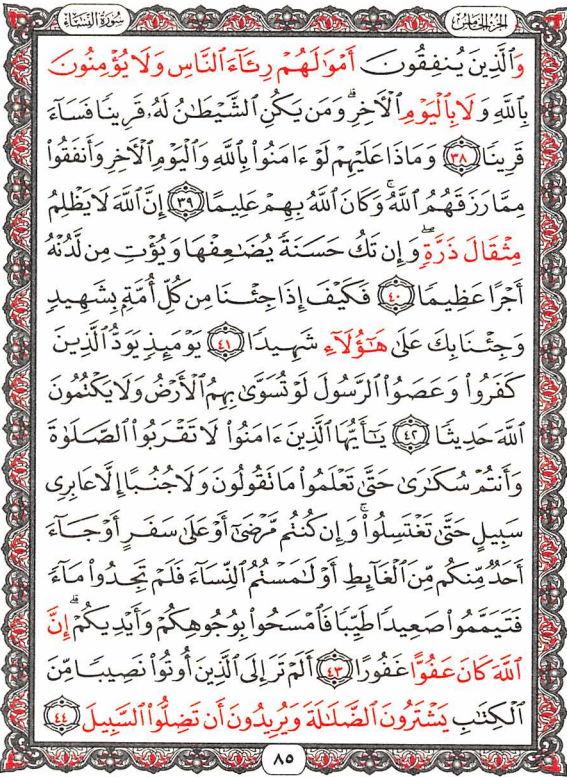 الجزء الخامس
سورة النساء
وَالَّذِينَ يُنفِقُونَ أَمْوَٰلَهُمْ رِئَآءَ ٱلنَّاسِ وَلَا يُؤْمِنُونَ
بِٱللَّهِ وَلَا بِٱلْيَوْمِ ٱلْءَاخِرِ ۗ وَمَن يَكُنِ ٱلشَّيْطَٰنُ لَهُۥ قَرِينًا فَسَآءَ
قَرِينًا ٣٨ وَمَاذَا عَلَيْهِمْ لَوْ ءَامَنُوا۟ بِٱللَّهِ وَٱلْيَوْمِ ٱلْءَاخِرِ وَأَنفَقُوا۟
مِمَّا رَزَقَهُمُ ٱللَّهُ ۚ وَكَانَ ٱللَّهُ بِهِمْ عَلِيمًا ٣٩ إِنَّ ٱللَّهَ لَا يَظْلِمُ
مِثْقَالَ ذَرَّةٍ ۖ وَإِن تَكُ حَسَنَةً يُضَٰعِفْهَا وَيُؤْتِ مِن لَّدُنْهُ
أَجْرًا عَظِيمًا ٤٠ فَكَيْفَ إِذَا جِئْنَا مِن كُلِّ أُمَّةٍۭ بِشَهِيدٍ
وَجِئْنَا بِكَ عَلَىٰ هَٰٓؤُلَآءِ شَهِيدًا ٤١ يَوْمَئِذٍ يَوَدُّ ٱلَّذِينَ
كَفَرُوا۟ وَعَصَوُا۟ ٱلرَّسُولَ لَوْ تُسَوَّىٰ بِهِمُ ٱلْأَرْضُ وَلَا يَكْتُمُونَ
ٱللَّهَ حَدِيثًا ٤٢ يَٰٓأَيُّهَا ٱلَّذِينَ ءَامَنُوا۟ لَا تَقْرَبُوا۟ ٱلصَّلَوٰةَ
وَأَنتُمْ سُكَٰرَىٰ حَتَّىٰ تَعْلَمُوا۟ مَا تَقُولُونَ وَلَا جُنُبًا إِلَّا عَابِرِى
سَبِيلٍ حَتَّىٰ تَغْتَسِلُوا۟ ۚ وَإِن كُنتُم مَّرْضَىٰٓ أَوْ عَلَىٰ سَفَرٍ أَوْ جَآءَ
أَحَدٌ مِّنكُم مِّنَ ٱلْغَآئِطِ أَوْ لَٰمَسْتُمُ ٱلنِّسَآءَ فَلَمْ تَجِدُوا۟ مَآءً
فَتَيَمَّمُوا۟ صَعِيدًا طَيِّبًا فَٱمْسَحُوا۟ بِوُجُوهِكُمْ وَأَيْدِيكُمْ ۗ إِنَّ
ٱللَّهَ كَانَ عَفُوًّا غَفُورًا ٤٣ أَلَمْ تَرَ إِلَى ٱلَّذِينَ أُوتُوا۟ نَصِيبًا مِّنَ
ٱلْكِتَٰبِ يَشْتَرُونَ ٱلضَّلَٰلَةَ وَيُرِيدُونَ أَن تَضِلُّوا۟ ٱلسَّبِيلَ ٤٤
٨٥